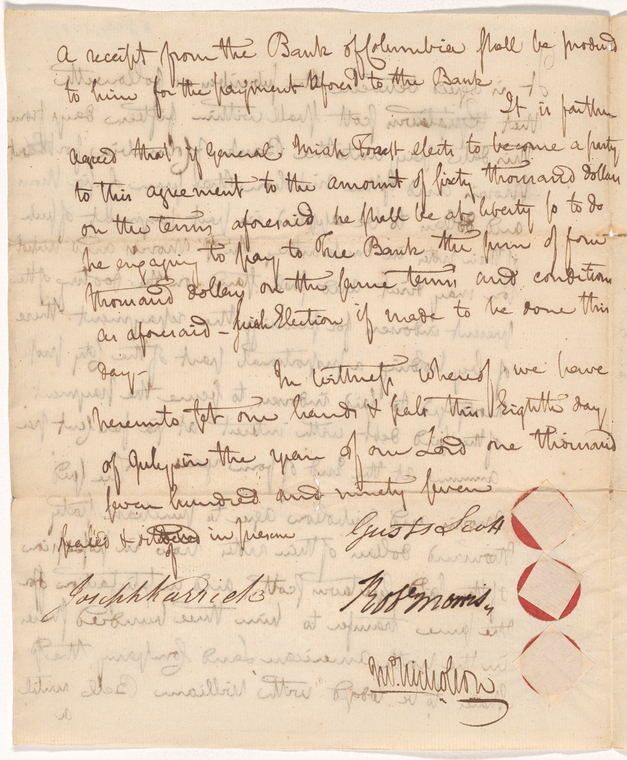 A receipt from the Bank of Columbia shall be produced
to him for the payment afores.d to the Bank
It is further
agreed that if General Uriah Forest elects to become a party
to this agreement to the amount of sixty thousand dollars
on the terms aforesaid he shall be at liberty so to do
he engaging to pay to the Bank the sum of four
thousand dollars on the same terms and conditions
as aforesaid – such Election if made to be done this
day –
In witness whereof we have
hereunto set our hands & seals this Eighth day
of July in the year of our Lord one thousand
seven hundred and ninety seven
sealed & in presence
Gust.s Scott
Joseph Karrick
Rob.t Morris
Jno. Nicholson